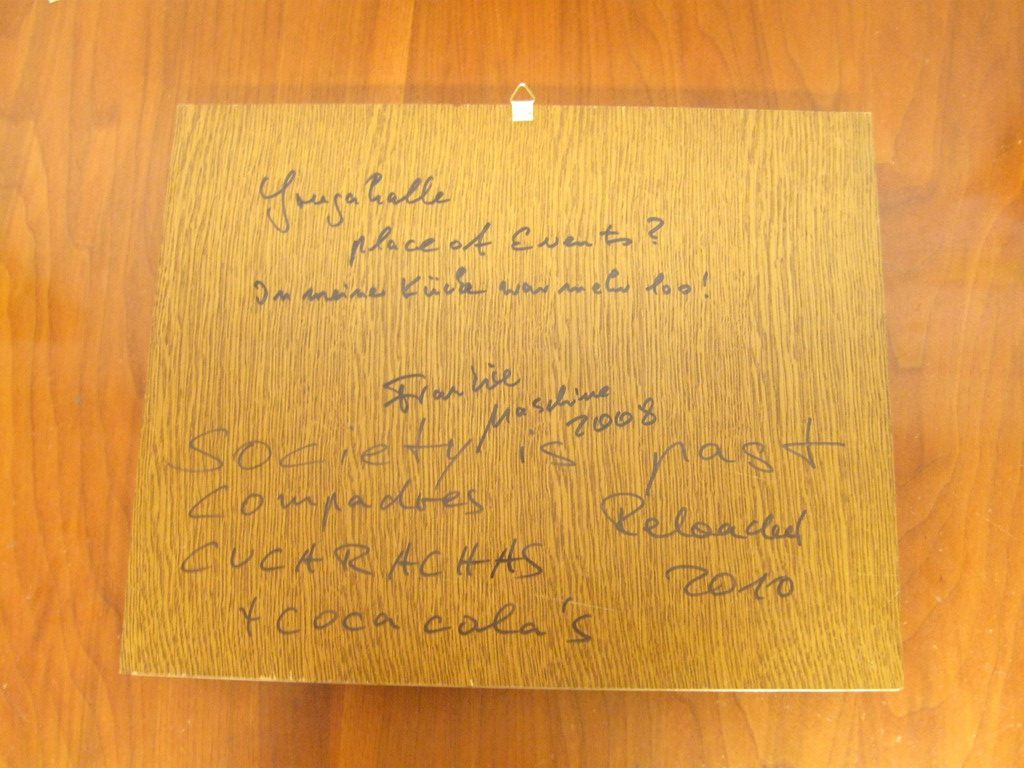 Yougahalle
place of Events?
In meiner Küche war mehr los!
Frankie
Maschine
2008
Society is past
Compadres
Reloaded
CUCARACHAS
2010
+ coca cola's